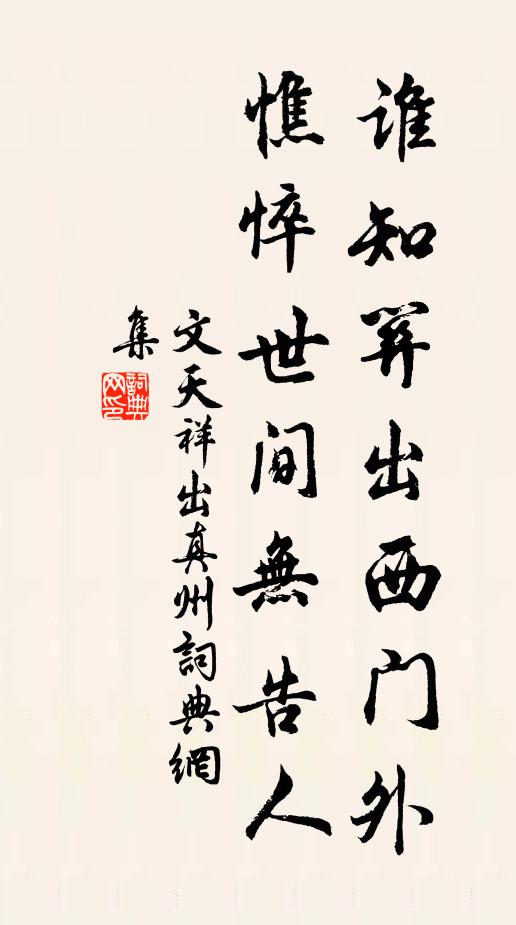 誰知筭出西门外
憔悴世間無告人
文天祥出真州詞典網
集
詞典
网印